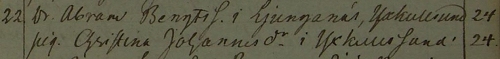 22 Dr. Abram Bengts S. i Ljunganäs, Yxkullsund 24
pig. Christina Johannes Dr i Yxkullsund. 24.